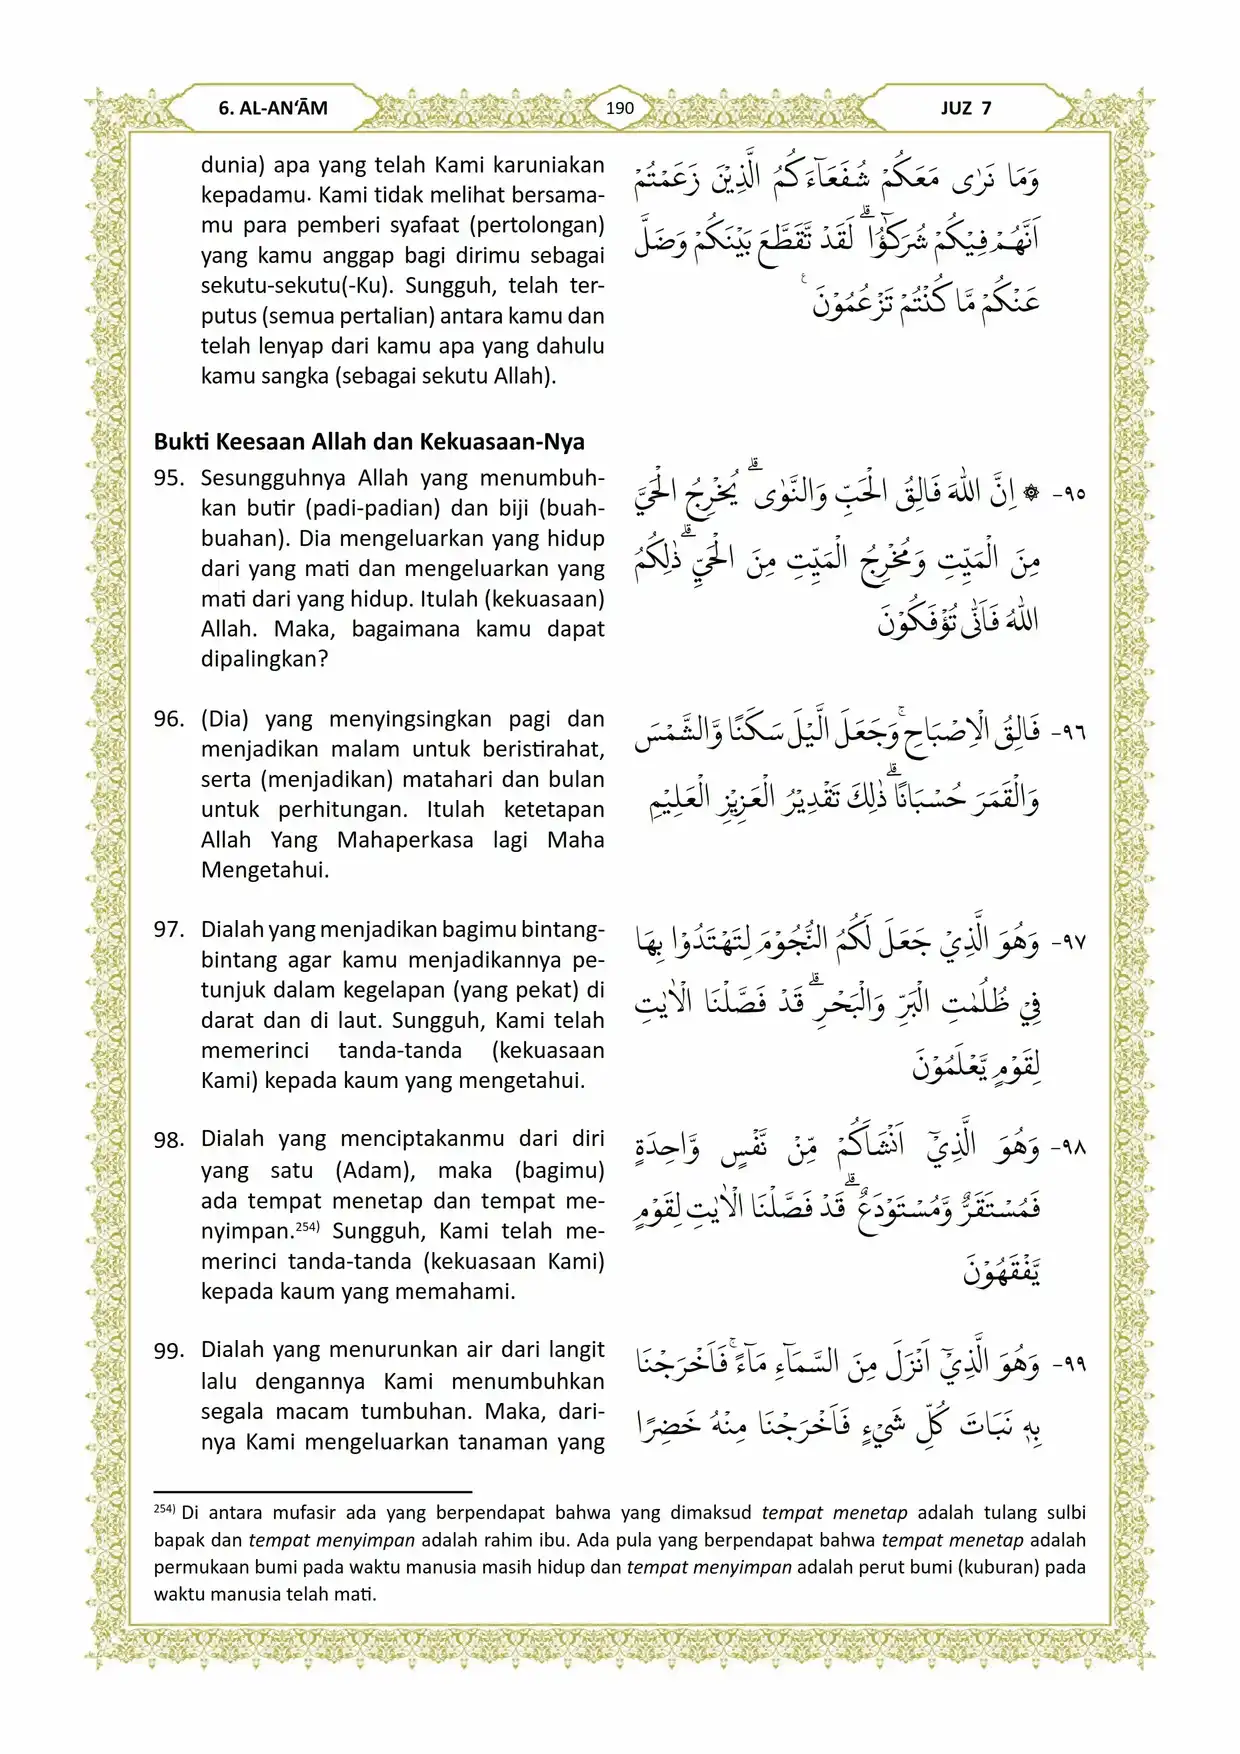 6. AL-AN‘ĀM
190
JUZ 7
dunia) apa yang telah Kami karuniakan
kepadamu. Kami tidak melihat bersama-
mu para pemberi syafaat (pertolongan)
yang kamu anggap bagi dirimu sebagai
sekutu-sekutu(-Ku). Sungguh, telah ter-
putus (semua pertalian) antara kamu dan
telah lenyap dari kamu apa yang dahulu
kamu sangka (sebagai sekutu Allah).
وَمَا نَرٰى مَعَكُمْ شُفَعَاۤءَكُمُ الَّذِيْنَ زَعَمْتُمْ
اَنَّهُمْ فِيْكُمْ شُرَكٰۤؤُا ۗ لَقَدْ تَّقَطَّعَ بَيْنَكُمْ وَضَلَّ
عَنْكُمْ مَّا كُنْتُمْ تَزْعُمُوْنَ ࣖ
Bukti Keesaan Allah dan Kekuasaan-Nya
95. Sesungguhnya Allah yang menumbuh-
kan butir (padi-padian) dan biji (buah-
buahan). Dia mengeluarkan yang hidup
dari yang mati dan mengeluarkan yang
mati dari yang hidup. Itulah (kekuasaan)
Allah. Maka, bagaimana kamu dapat
dipalingkan?
٩٥- ۞ اِنَّ اللّٰهَ فَالِقُ الْحَبِّ وَالنَّوٰى ۗ يُخْرِجُ الْحَيَّ
مِنَ الْمَيِّتِ وَمُخْرِجُ الْمَيِّتِ مِنَ الْحَيِّ ۗ ذٰلِكُمُ
اللّٰهُ فَاَنّٰى تُؤْفَكُوْنَ
96. (Dia) yang menyingsingkan pagi dan
menjadikan malam untuk beristirahat,
serta (menjadikan) matahari dan bulan
untuk perhitungan. Itulah ketetapan
Allah Yang Mahaperkasa lagi Maha
Mengetahui.
٩٦- فَالِقُ الْاِصْبَاحِ ۚ وَجَعَلَ الَّيْلَ سَكَنًا وَّالشَّمْسَ
وَالْقَمَرَ حُسْبَانًا ۗ ذٰلِكَ تَقْدِيْرُ الْعَزِيْزِ الْعَلِيْمِ
97. Dialah yang menjadikan bagimu bintang-
bintang agar kamu menjadikannya pe-
tunjuk dalam kegelapan (yang pekat) di
darat dan di laut. Sungguh, Kami telah
memerinci tanda-tanda (kekuasaan
Kami) kepada kaum yang mengetahui.
٩٧- وَهُوَ الَّذِيْ جَعَلَ لَكُمُ النُّجُوْمَ لِتَهْتَدُوْا بِهَا
فِيْ ظُلُمٰتِ الْبَرِّ وَالْبَحْرِ ۗ قَدْ فَصَّلْنَا الْاٰيٰتِ
لِقَوْمٍ يَّعْلَمُوْنَ
98. Dialah yang menciptakanmu dari diri
yang satu (Adam), maka (bagimu)
ada tempat menetap dan tempat me-
nyimpan.254) Sungguh, Kami telah me-
merinci tanda-tanda (kekuasaan Kami)
kepada kaum yang memahami.
٩٨- وَهُوَ الَّذِيْٓ اَنْشَاَكُمْ مِّنْ نَّفْسٍ وَّاحِدَةٍ
فَمُسْتَقَرٌّ وَّمُسْتَوْدَعٌ ۗ قَدْ فَصَّلْنَا الْاٰيٰتِ لِقَوْمٍ
يَّفْقَهُوْنَ
99. Dialah yang menurunkan air dari langit
lalu dengannya Kami menumbuhkan
segala macam tumbuhan. Maka, dari-
nya Kami mengeluarkan tanaman yang
٩٩- وَهُوَ الَّذِيْٓ اَنْزَلَ مِنَ السَّمَاۤءِ مَاۤءً ۚ فَاَخْرَجْنَا
بِهٖ نَبَاتَ كُلِّ شَيْءٍ فَاَخْرَجْنَا مِنْهُ خَضِرًا
254) Di antara mufasir ada yang berpendapat bahwa yang dimaksud tempat menetap adalah tulang sulbi
bapak dan tempat menyimpan adalah rahim ibu. Ada pula yang berpendapat bahwa tempat menetap adalah
permukaan bumi pada waktu manusia masih hidup dan tempat menyimpan adalah perut bumi (kuburan) pada
waktu manusia telah mati.